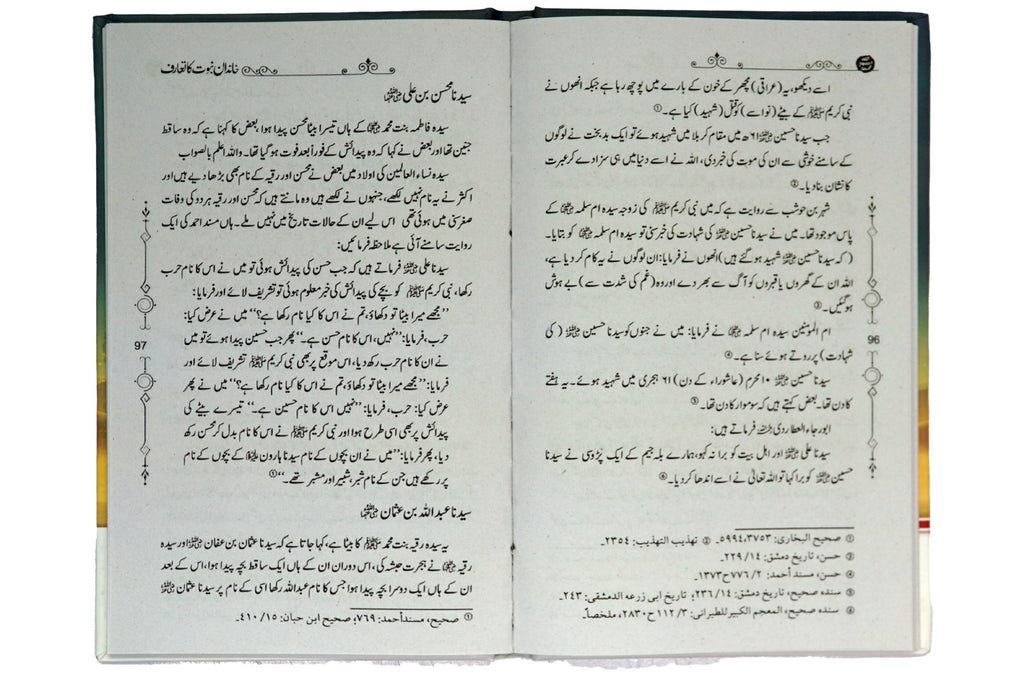 اسے دیکھو، یہ (عراقی) مچھر کے خون کے بارے میں پوچھ رہا ہے جبکہ انھوں نے
نبی کریم ﷺ کے بیٹے (نواسے) کو قتل (شہید) کیا ہے۔ ①
جب سیدنا حسین رضی اللہ عنہ ۶۱ھ میں مقام کربلا میں شہید ہوئے تو ایک بدبخت نے لوگوں
کے سامنے خوشی سے ان کی موت کی خبر دی، اللہ نے اسے دنیا میں ہی سزا دے کر عبرت
کا نشان بنا دیا۔ ②
شہر بن حوشب سے روایت ہے کہ میں نبی کریم ﷺ کی زوجہ سیدہ ام سلمہ رضی اللہ عنہا کے
پاس موجود تھا۔ میں نے سیدنا حسین رضی اللہ عنہ کی شہادت کی خبر سنی تو سیدہ ام سلمہ رضی اللہ عنہا کو بتایا۔
(کہ سیدنا حسین رضی اللہ عنہ شہید ہو گئے ہیں) انھوں نے فرمایا: ان لوگوں نے یہ کام کر دیا ہے،
اللہ ان کے گھروں یا قبروں کو آگ سے بھر دے اور وہ (غم کی شدت سے) بے ہوش
ہو گئیں۔ ③
ام المؤمنین سیدہ ام سلمہ رضی اللہ عنہا نے فرمایا: میں نے جنوں کو سیدنا حسین رضی اللہ عنہ (کی
شہادت) پر روتے ہوئے سنا ہے۔ ④
سیدنا حسین رضی اللہ عنہ ۱۰ محرم (عاشوراء کے دن) ۶۱ ہجری میں شہید ہوئے۔ یہ ہفتے
کا دن تھا۔ بعض کہتے ہیں کہ سوموار کا دن تھا۔ ⑤
ابو رجاء العطاردی رحمہ اللہ فرماتے ہیں:
سیدنا علی رضی اللہ عنہ اور اہل بیت کو برا نہ کہو، ہمارے بلہجیم کے ایک پڑوسی نے سیدنا
حسین رضی اللہ عنہ کو برا کہا تو اللہ تعالیٰ نے اسے اندھا کر دیا۔ ⑥
① صحیح البخاری: ۳۷۵۳، ۵۹۹۴۔ ② تهذیب التهذیب: ۲۳۵۴۔
③ حسن، تاریخ دمشق: ۱۴/ ۲۲۹۔
④ حسن، مسند أحمد: ۲/ ۷۷۶ ح ۱۳۷۳۔
⑤ سنده صحیح، تاریخ دمشق: ۱۴/ ۲۳۶؛ تاریخ ابی زرعه الدمشقی: ۲۴۳۔
⑥ سنده صحیح، المعجم الکبیر للطبرانی: ۳/ ۱۱۲ ح ۲۸۳۰، ملخصاً۔
96
خاندان نبوت کا تعارف
سیدنا محسن بن علی رضی اللہ عنہما
سیدہ فاطمہ بنت محمد رضی اللہ عنہا کے ہاں تیسرا بیٹا محسن پیدا ہوا، بعض کا کہنا ہے کہ وہ ساقط
جنین تھا اور بعض نے کہا کہ وہ پیدائش کے فوراً بعد فوت ہو گیا تھا۔ واللہ اعلم بالصواب
سیدہ نساء العالمین کی اولاد میں بعض نے محسن اور رقیہ کے نام بھی بڑھا دیے ہیں اور
اکثر نے یہ نام نہیں لکھے، جنہوں نے لکھے ہیں وہ مانتے ہیں کہ محسن اور رقیہ ہر دو کی وفات
صغر سنی میں ہوئی تھی اس لیے ان کے حالات تاریخ میں نہیں ملے۔ ہاں مسند احمد کی ایک
روایت سامنے آئی ہے ملاحظہ فرمائیں:
سیدنا علی رضی اللہ عنہ فرماتے ہیں کہ جب حسن کی پیدائش ہوئی تو میں نے اس کا نام حرب
رکھا، نبی کریم ﷺ کو بچے کی پیدائش کی خبر معلوم ہوئی تو تشریف لائے اور فرمایا:
’’مجھے میرا بیٹا تو دکھاؤ، تم نے اس کا کیا نام رکھا ہے؟‘‘ میں نے عرض کیا:
حرب، فرمایا: ’’نہیں، اس کا نام حسن ہے۔‘‘ پھر جب حسین پیدا ہوئے تو میں
نے ان کا نام حرب رکھ دیا، اس موقع پر بھی نبی کریم ﷺ تشریف لائے اور
فرمایا: ’’مجھے میرا بیٹا تو دکھاؤ، تم نے اس کا کیا نام رکھا ہے؟‘‘ میں نے پھر
عرض کیا: حرب، فرمایا: ’’نہیں اس کا نام حسین ہے۔‘‘ تیسرے بیٹے کی
پیدائش پر بھی اسی طرح ہوا اور نبی کریم ﷺ نے اس کا نام بدل کر محسن رکھ
دیا، پھر فرمایا: ’’میں نے ان بچوں کے نام سیدنا ہارون علیہ السلام کے بچوں کے نام
پر رکھے ہیں جن کے نام شبر، شبیر اور مشبر تھے۔‘‘ ①
سیدنا عبداللہ بن عثمان رضی اللہ عنہما
یہ سیدہ رقیہ بنت محمد ﷺ کا بیٹا ہے، کہا جاتا ہے کہ سیدنا عثمان بن عفان رضی اللہ عنہ اور سیدہ
رقیہ رضی اللہ عنہا نے ہجرت حبشہ کی، اس دوران ان کے ہاں ایک ساقط بچہ پیدا ہوا، اس کے بعد
ان کے ہاں ایک دوسرا بچہ پیدا ہوا جس کا نام عبداللہ رکھا اسی کے نام پر سیدنا عثمان رضی اللہ عنہ
① صحیح، مسند أحمد: ۷۶۹؛ صحیح ابن حبان: ۱۵/ ۴۱۰۔
97